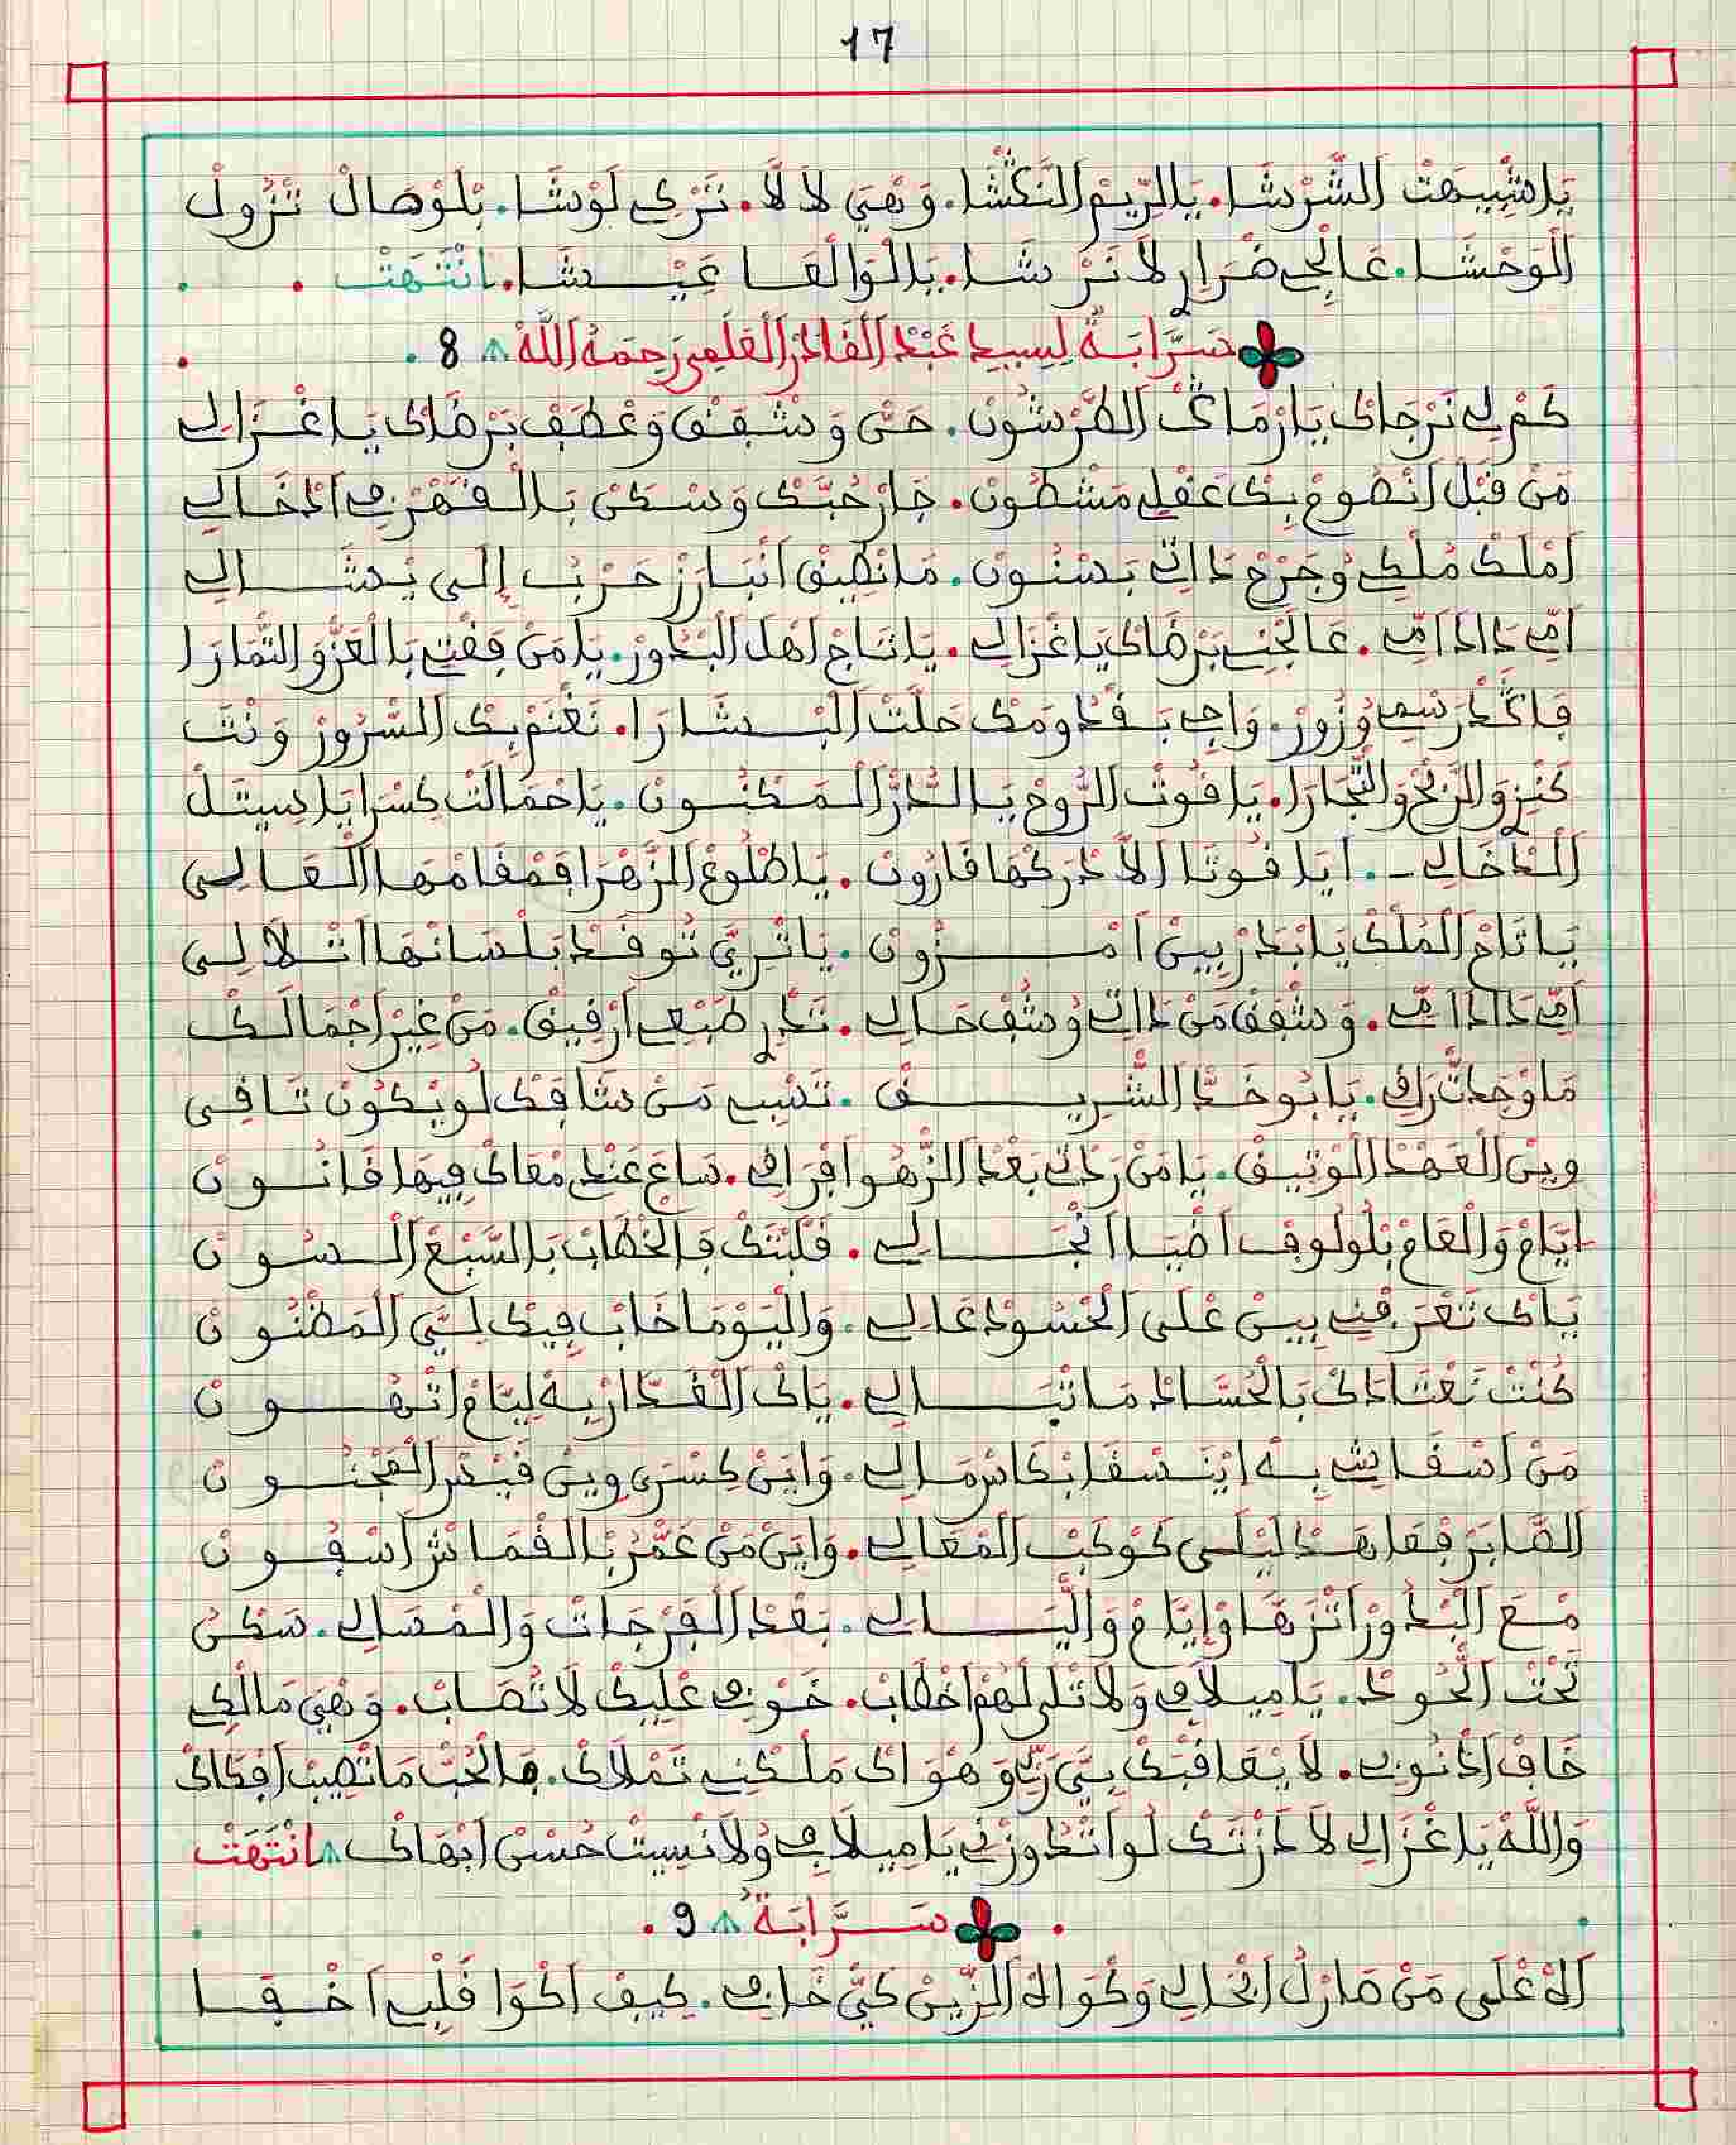 17
يَا شْبِيهَتْ الشَّرْشَا. يَالرِّيمْ النَّكْشَا. وَهْيَ لَا لَّا. تَرْكِي لَوْشَا. بْلَوْصَالْ تْزُولْ
الْوَحْشَا. عَالْجِي ضْرَارِي لَا تَرْشَا. يَالْوَالْعَا عَيْشَا. انْتَهَتْ
سَرَّابَةٌ لِسِيدِي عَبْدْ الْقَادَرْ الْعَلَمِي رَحِمَهُ اللَّهْ 8
كَمْ لِي نَرْجَاكْ يَا رْمَاڭْ الطَّرْشُونْ. حَنْ وَشْفَقْ وَعْطَفْ بَرْضَاكْ يَا غْزَالِي
مَنْ قْبَلْ انْضُوعْ بِكْ عَقْلِي مَشْطُونْ. جَارْ حُبَّكْ وَسْكَنْ بَالْقْهَرْ فِي ادْخَالِي
امْلَكْ مُلْكِي وُجَرْحْ دَاتِي بَسْنُونْ. مَا نْطِيقْ انْبَارَزْ حَرْبُ إِلَى يْشَالِي
امِّي دَادَا امِّي. عَالَجْنِي بَرْضَاكْ يَا غْزَالِي. يَا تَاجْ اهْلْ الْبْدُورْ. يَا مَنْ فَقْتِي بَالْعَزّْ وَالتّْمَارَا
فَاڭَدْ رَسْمِي وُزُورْ. وَاجِي بَفْدْوَمَكْ حَلَّتْ الْبْشَارَا. نَغْنَمْ بِكْ السّْرُورْ وَنْتَ
كَنْزِي وَالرَّبْحْ وَالتّْجَارَا. يَا قُوتْ الرُّوحْ يَالدُّرّْ الْمَكْنُونْ. يَا حْمَالَتْ كِسْرَا يَا سِيتَلْ
الدْخَالِي -. ايَا قُوتَا الَّا دْرَكْهَا قَارُونْ. يَا طْلُوعْ الزَّهْرَا فَمْقَامْهَا الْعَالِي
يَا تَاجْ الْمُلْكْ يَا بْدَرْ بِينْ امْزُونْ. يَا تْرِيَّ تُوقَدْ بَلْسَانْهَا اتْلَالِي
امِّي دَادَا امِّي. وَشْفَقْ مَنْ دَاتِي وُشُفْ حَالِي. تَدْرِي طَبْعِي ارْقِيقْ. مَنْ غِيرْ اجْمَالَكْ
مَا وْجَدْتْ رَاقِي. يَا بُوخَدّْ الشّْرِيقْ. تَسْبِي مَنْ شَافَكْ لُو يْكُونْ تَاقِي
وِينْ الْعَهْدْ الْوْتِيقْ. يَا مَنْ رَدْتِي بَعْدْ الزّْهُو افْرَاقِي. سَاعَ عَنْدِي مْعَاكْ فِيهَا قَانُونْ
ايَّامْ وَالْعَامْ بْلُولُوفْ اضْيَا انْجَالِي. قَلْبْتَكْ فَالْخْطَابْ بَالسَّبْعْ السُونْ
يَاكْ تَعْرَفْنِي بِينْ عْلَى الْحْسُودْ عَالِي. وَالْيَوْمَا خَابْ فِيكْ لِيَّ الْمَضْنُونْ
كُنْتْ نَعْتَادَكْ بَالْحُسَّادْ مَا تْبَالِي. يَاكْ الْغَدَّارْ بِهْ لِيَّامْ اتْهُونْ
مَنْ اسْقَانِي بِهْ ايْنَسْقَا بْكَاسْ مَالِي. وَايَنْ كِسْرَى وِينْ قَيْصَرْ الْمَجْنُونْ
الصَّابَرْ فَعَاهَدْ لَيْلَى كَوْكَبْ الْمْعَالِي. وَايَنْ مَنْ عَمَّرْ بَالْقْمَانَرْ اسْفُونْ
مْعَ الْبْدُورْ اتْزَهَّاوْ إِيَّامْ وَالْيَالِي. بَعْدْ الْفَرْجَاتْ وَالْمْسَالِي. سَكْنُ
تَحْتْ اللّْحُودْ. يَا مِيلَافِي وَلَا تْلَى لْهُمْ اخْطَابْ. خَوْفِي عْلِيكْ لَا تْصَابْ. وَهْيَ مَالْكِي
خَافْ ادْنُوبِي. لَا يْعَاقْبَكْ بِيَّ رَبِّي وَهْوَاكْ مَلْكْنِي تَمْلَاكْ. فَالْحُبّْ مَا نْصِيبْ افْكَاكْ
وَاللَّهْ يَا غْزَالِي لَا دَزْتَكْ لُو اتْدُوزْنِي يَا مِيلَافِي وُلَا نْسِيتْ حُسْنْ ابْهَاكْ انْتَهَتْ
سَرَّابَةٌ 9
اللَّهْ عْلَى مَنْ صَارْلُ ابْحَالِي وَكْوَاهْ الزِّينْ كَيّْ خَافِي. كِيفْ اكْوَا قَلْبِي اخْفَا